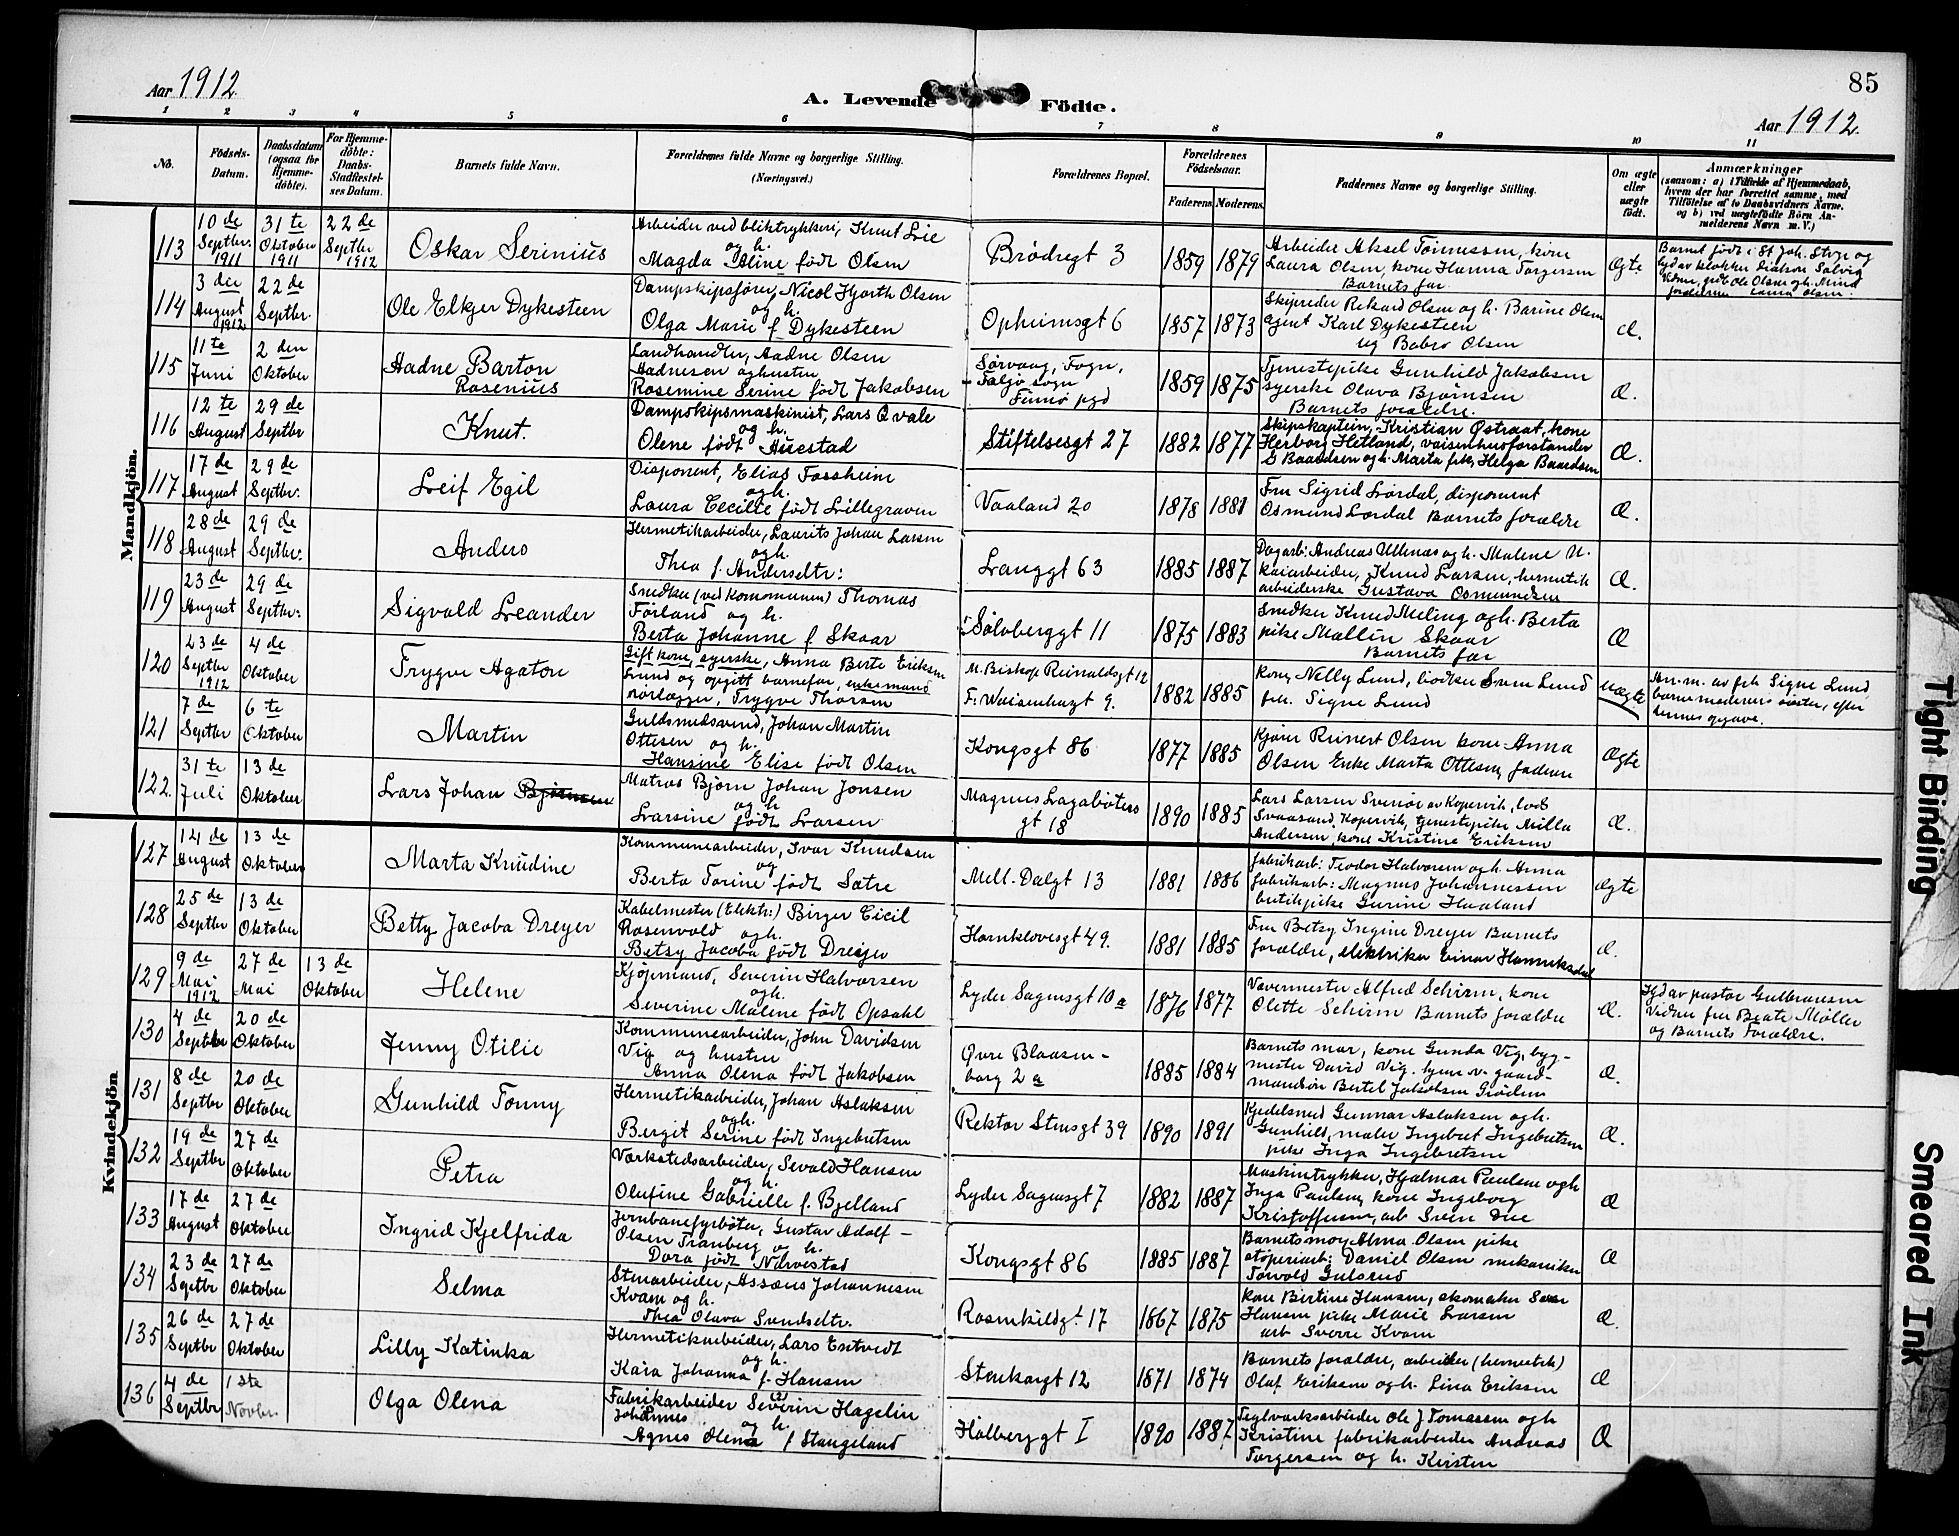 Aar 1912
A. Levende Födte.
85
Aar 1912.
1 2 3 4 5 6 7 8 9 10 11
No.
Födsels-Datum.
Daabsdatum (ogsaa for Hjemme-döbte).
For Hjemme-döbte: Daabs-Stadfæstel-ses Datum.
Barnets fulde Navn.
Forældrenes fulde Navne og borgerlige Stilling. (Næringsvei.)
Forældrenes Bopæl.
Forældrenes Födselsaar.
Faderens. Moderens.
Faddernes Navne og borgerlige Stilling.
Om ægte eller uægte födt.
Anmærkninger
(saasom: a) i Tilfælde af Hjemmedaab, hvem der har forrettet samme, med Tilföielse af to Daabsvidners Navne, og b) ved uægtefödte Börn An-melderens Navn m. V.)
Mandkjön.
113 10de Septbr. 1911 31te Oktober 1911 22de Septbr 1912 Oskar Serinius
Arbeider ved bliktrykkeri, Knut Lie og h. Magda Aline født Olsen
Brødregt 3 1859 1879
Arbeider Aksel Tønnessen, kone Laura Olsen, kone Hanna Torgersen Barnets far
Ægte
114 3die August 1912 22de Septbr. Ole Elkjer Dykesteen
Dampskipsfører, Nicol Hjorth Olsen og h. Olga Marie f Dykesteen
Opheimsgt 6 1857 1873
Skipreder Rikard Olsen og h. Barine Olsen agent Karl Dykesteen og Olsen
Æ.
115 11te Juni 2den Oktober Aadne Barton Rosenius
Landhandler, Aadne Olsen Aadnesen og hustru Rosemine Serine født Jakobsen
Sørvaag, Fogn, sogn pgd 1859 1875
Tjenestepike Gunhild Jakobsen syerske Olava Bjørnsen Barnets forældre.
Æ.
116 12te August 29de Septbr Knut.
Dampskipsmaskinist, Lars Qvale og h. Olene født Auestad
Stiftelsesgt 27 1882 1877
Skipskaptein, Kristian Østraat, kone Herborg Hetland, vaisenhusforstander G Baardsen og h. Marta pike, Helga Baardsen
Æ.
117 17de August 29de Septbr. Leif Egil
Disponent, Elias Fossheim og h. Laura Cecilie født Lillegraven
Vaaland 20 1878 1881
Fru Sigrid Lørdal, disponent Osmund Lørdal Barnets forældre
Æ.
118 28de August 29de Septbr. Anders
Hermetikarbeider, Laurits Johan Larsen og h. Thea f. Andersdtr:
Langgt 63 1885 1887
Dagarb: Andreas Ullenæs og h. Malene U. kaiarbeider, Knud Larsen, hermetik arbeiderske Gustava Osmundsen
Æ.
119 23de August 29de Septbr: Sigvald Leander
Snedker (ved kommunen) Thomas Førland og h. Berta Johanne f Skaar
Sølvberggt 11 1875 1883
Snedker Knud Meling og h. Berta pike Mallin Skaar Barnets far
Æ
120 23de Septbr 1912 4de Oktober Trygve Agaton
Gift kone, syerske, Anna Berte Eriksen Lund og opgitt barnefar, enkemand rørlægger, Trygve Thorsen
M. Biskop Reinaldsgt 12 F. Waisenhusgt 9. 1882 1885
kone Nelly Lund, bødker Sven Lund frk. Signe Lund
Uægte
An.m. av frk Signe Lund, barnemoderens søster, efter hennes opgave.
121 7de Septbr 6te Oktober Martin
Guldsmedsvend, Johan Martin Ottesen og h. Hansine Elise født Olsen
Kongsgt 86 1877 1885
Kjører Reinert Olsen kone Anna Olsen Enke Marta Ottesen, faderen
Ægte
122. 31te Juli 13de Oktober Lars Johan
Matros Bjørn Johan Jonsen og h Larsine født Larsen
Magnus Lagabøters gt 18 1890 1885
Lars Larsen av Kopervik, Kopervik, tjenestepike Milla Andersen, kone Kristine Eriksen
Æ.
Kvindekjön
127 14de August 13de Oktober Marta Knudine
Kommunearbeider, Ivar Knudsen og Berta Torine født Sætre
Mell. Dalgt 13 1881 1886
fabrikarb: Teodor Halvorsen og h. Anna fabrikarb: Magnus Johannessen butikpike Gurine Haaland
Ægte
128 25de Septbr 13de Oktober Betty Jacoba Dreyer
Kabelmester (Elektr:) Birger Cicil Rosenvold og h. Betsy Jacoba født Dreyer
Harnkløvesgt 49. 1881 1885
Fru Betsy Ingine Dreyer Barnets forældre, elektriker Einar Henriksdal
Æ.
129 9de Mai 1912 27de Mai 13de Oktober Helene
Kjøpmand, Severin Halvorsen og h. Severine Malene født Opsahl
Lyder Sagensgt 10a 1876 1877
Vævermester Alfred Schirm, kone Olette Schirm Barnets forældre
Æ.
Hjd av pastor Gulbransen Vidner fru Beate Møller og Barnets Forældre.
130 4de Septbr 20de Oktober Jenny Otilie
Kommunearbeider, John Davidsen Vig og hustru Anna Olena født Jakobsen
Øvre Blaasenborg 2a 1885 1884
Barnets mor, kone Gunda Vig, bygmester David Vig, gaardmandsøn Bertel Jakobsen
Æ.
131 8de Septbr 20de Oktober Gunhild Tonny
Hermetikarbeider, Johan Aslaksen og h. Bergit Serine født Ingebretsen
Rektor Stensgt 39 1890 1891
Kjedelsmed Gunnar Aslaksen og h. Gunhild, maler Ingebret Ingebretsen pike Inga Ingebretsen
Æ.
132 19de Septbr 27de Oktober Petra
Værkstedsarbeider, Sevald Hansen og h. Olufine Gabrielle f. Bjelland
Lyder Sagensgt 7 1882 1887
Maskintrykker, Hjalmar Paulsen og h Inga Paulsen, kone Ingeborg Kristoffersen, arb Sven Due
Æ
133 17de August 27de Oktober Ingrid Kjelfrida
Jernbanefyrbøter, Gustav Adolf Olsen Tranberg og h. Dora født Narvestad
Kongsgt 86 1885 1887
Barnets mor, Alma Olsen pike støperiarb: Daniel Olsen mekaniker Torvald Gulsrud
Æ
134 23de Septbr 27de Oktober Selma
Stenarbeider, Assæus Johannesen Kvam og h. Thea Olava Svendsdtr.
Rosenkildgt 17 1867 1875
Kone Bertine Hansen, skomaker Hansen pike Marie Larsen arb Sverre Kvam
Æ.
135 26de Septbr 27de Oktober Lilly Katinka
Hermetikarbeider, Lars Entvedt og h. Kaia Johanna f Hansen
Stenkargt 12 1871 1874
Barnets forældre, arbeider (hermetik) Olaf Eriksen og h. Lina Eriksen
Æ
136 4de Septbr 1ste Novbr. Olga Olena
Fabrikarbeider Severin Hagelin Johannes og h. Agnes Olena f Stangeland
Holberggt I 1890 1887
Teglværksarbeider Ole J Tomassen og h Kristine fabrikarbeider Andreas Torgersen og h. Kirsten
Æ
Tight Binding
Smeared Ink